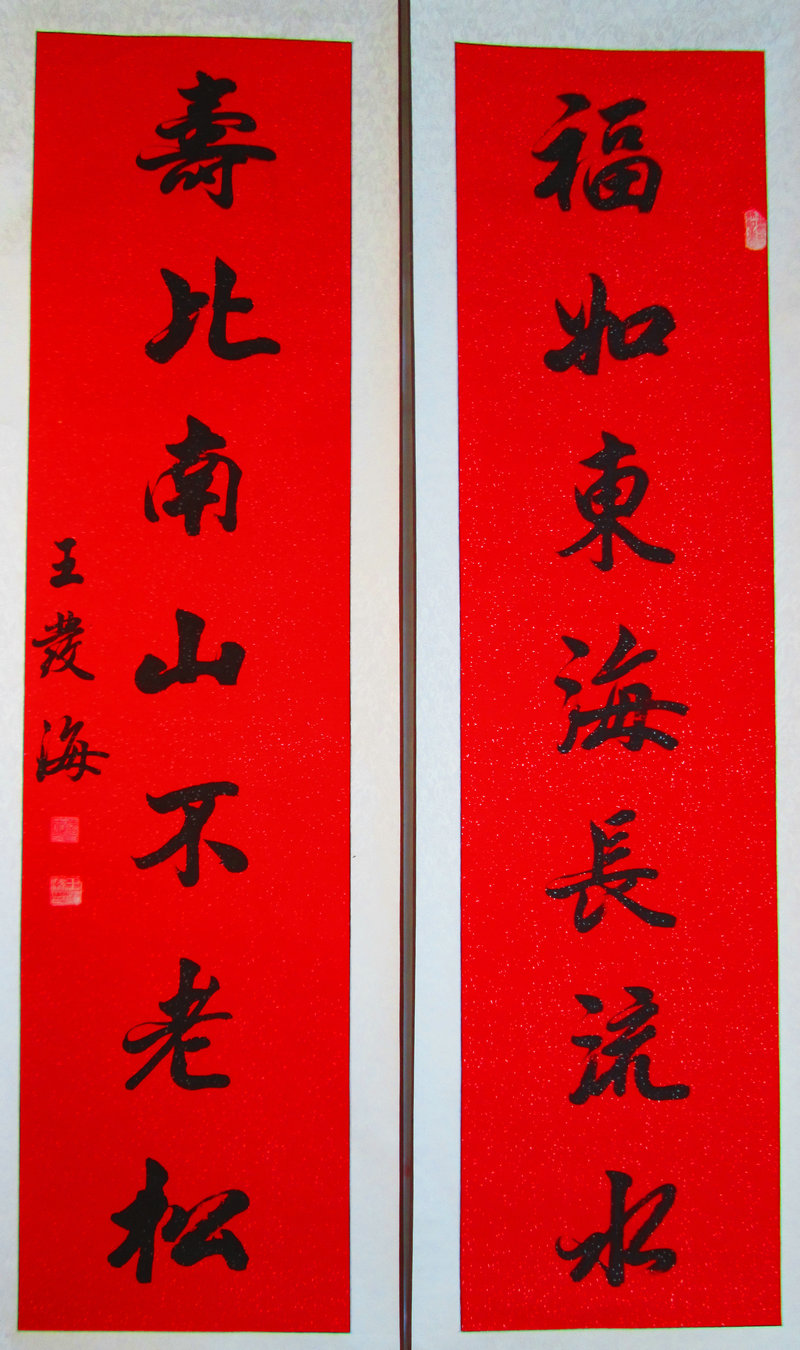 福如東海長流水
壽比南山不老松
王發海